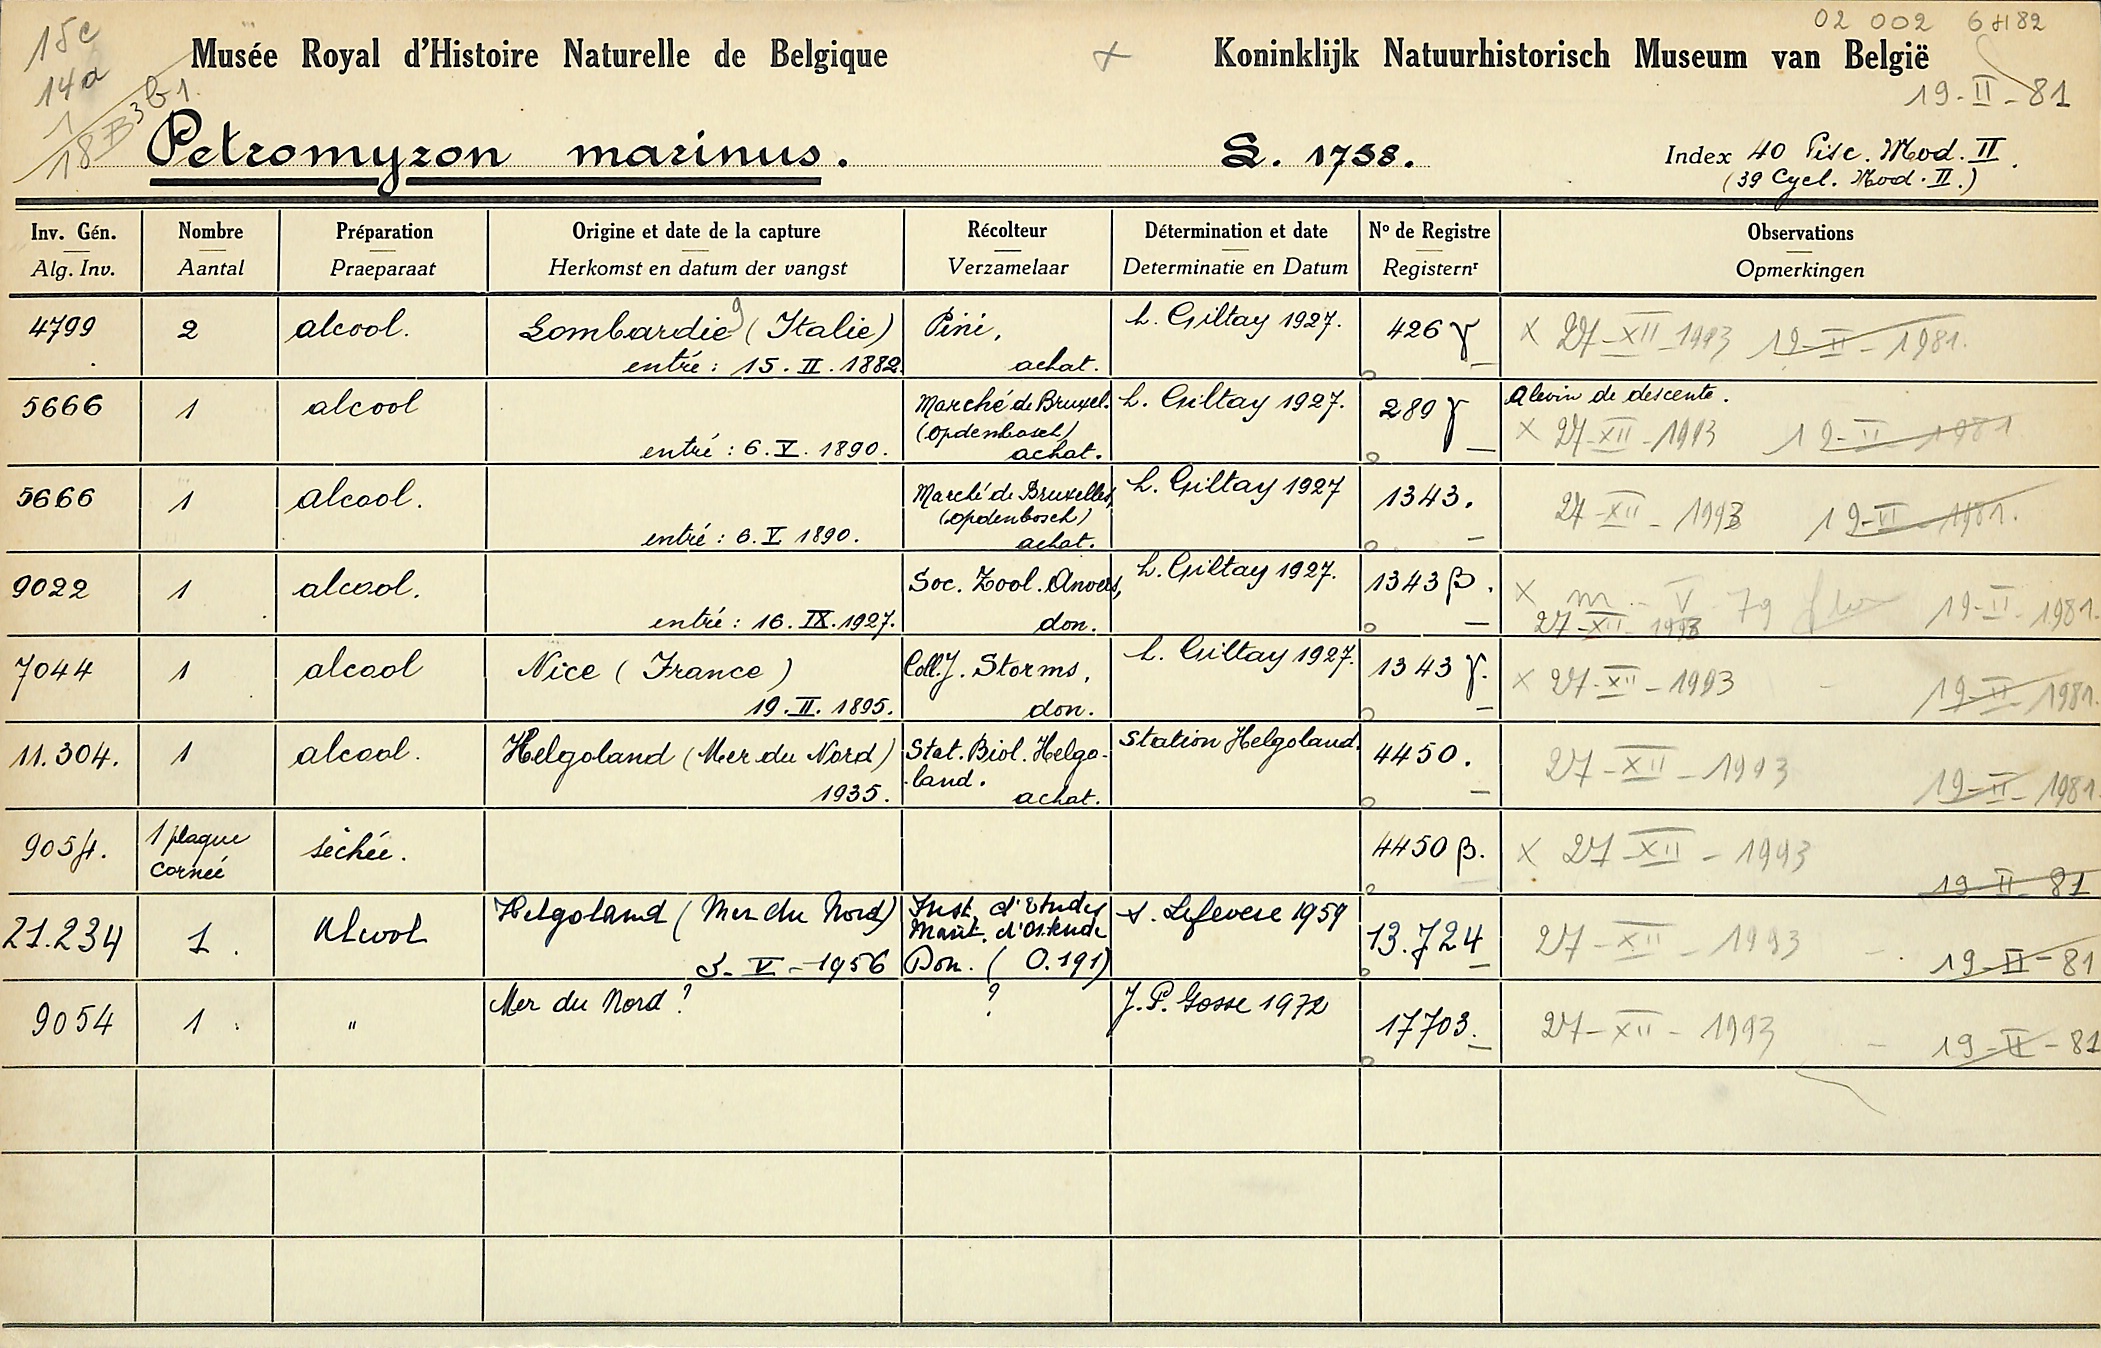 02 002 6482
15c
Musée Royal d'Histoire Naturelle de Belgique
Koninklijk Natuurhistorisch Museum van België
14a
19-II-81
1
18 B³ b1.
Petromyzon marinus. L. 1758.
Index 40 Pisc. Mod. II.
(39 Cycl. Mod. II.)
Inv. Gén. Nombre Préparation Origine et date de la capture Récolteur Détermination et date Nº de Registre Observations
Alg. Inv. Aantal Praeparaat Herkomst en datum der vangst Verzamelaar Determinatie en Datum Registernr Opmerkingen
4799 2 alcool. Lombardie (Italie) Pini, L. Giltay 1927. 426 γ x 27-XII-1993 19-II-1981.
entré: 15. II. 1882. achat.
5666 1 alcool Marché de Bruxel. L. Giltay 1927. 289 γ Alevin de descente.
(Opdenbosch) x 27-XII-1993 19-II-1981
entré: 6. V. 1890. achat.
5666 1 alcool. Marché de Bruxelles, L. Giltay 1927 1343. 27-XII-1993 19-II-1981.
(Opdenbosch)
entré: 6. V 1890. achat.
9022 1 alcool. Soc. Zool. Anvers, L. Giltay 1927. 1343 β. x m - V 79 19-II-1981.
entré: 16. IX. 1927. don. 27-XII-1993
7044 1 alcool Nice (France) Coll. J. Storms, L. Giltay 1927. 1343 γ. x 27-XII-1993 19-II-1981.
19. II. 1895. don.
11.304. 1 alcool. Helgoland (Mer du Nord) Stat. Biol. Helgo- Station Helgoland. 4450. 27-XII-1993 19-II-1981
-land.
1935. achat.
9054. 1 plaque cornée séchée. 4450 β. x 27-XII-1993 19-II-81
21.234 1. Alcool Helgoland (Mer du Nord) Inst. d'Etudes S. Lefevere 1959 13.724 27-XII-1993 19-II-81
Marit. d'Ostende
3-V-1956 Don. (O.191)
9054 1 " Mer du Nord? ? J.P. Gosse 1972 17703. 27-XII-1993 19-II-81